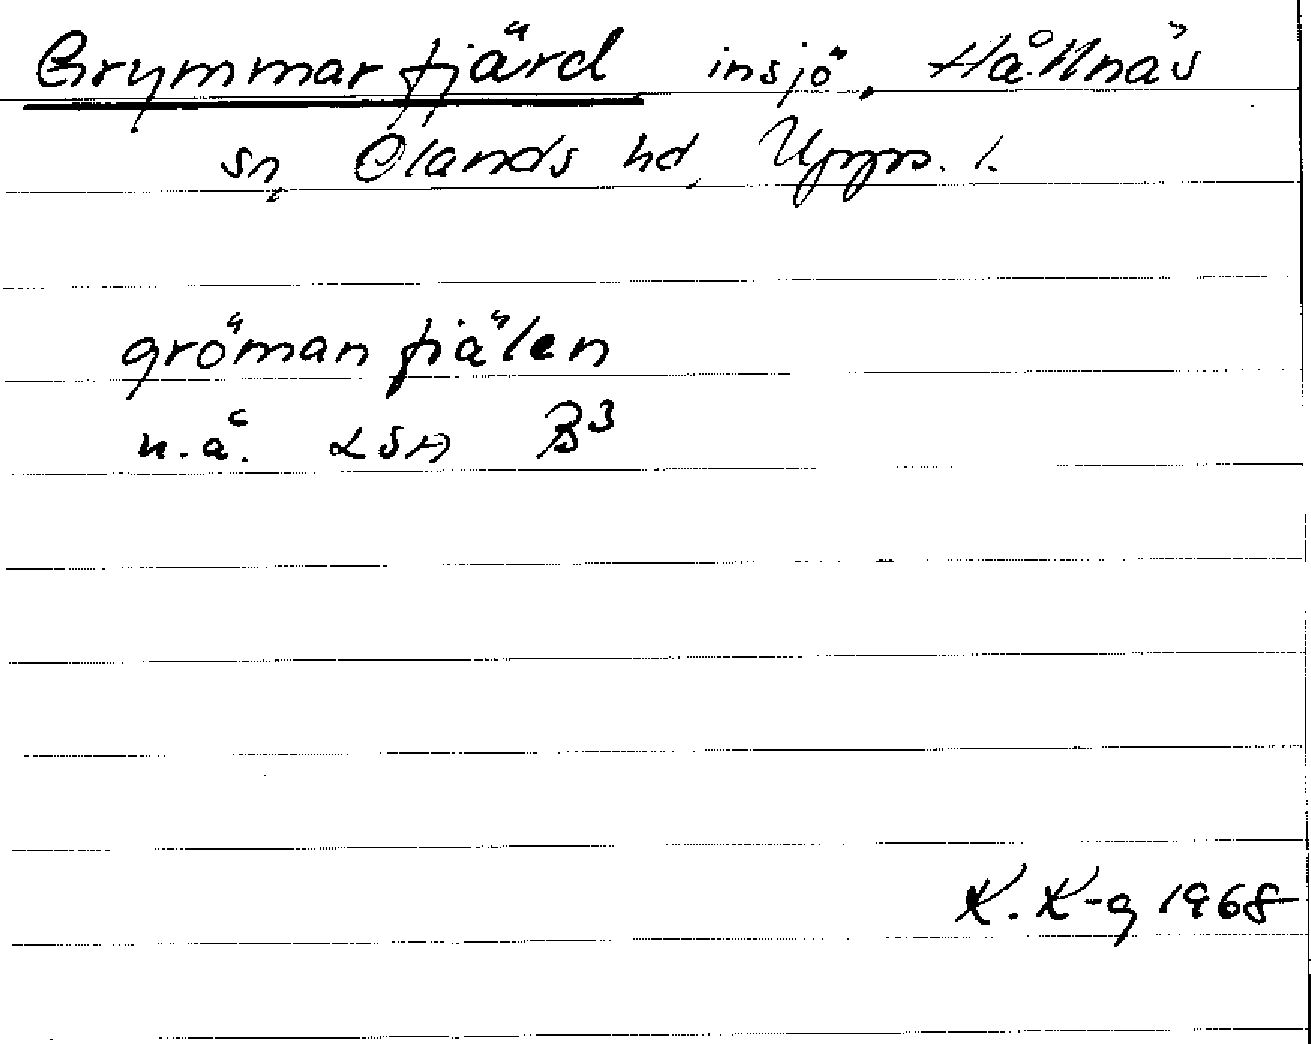 Grymmarfjärd insjö, Hållnäs
sn, Olands hd, Upps. l.
gröman fjälen
n.å. LSA B3
K. K-g 1968